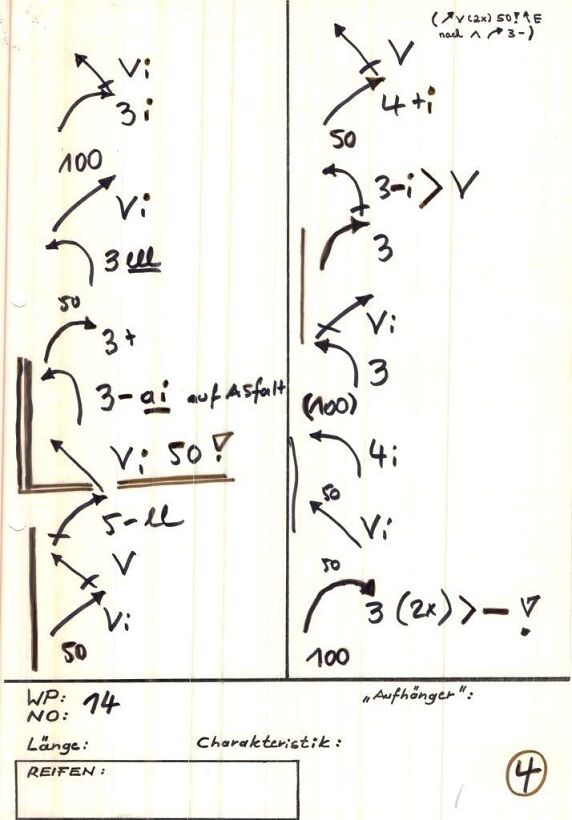 (↗ V (2x) 50! ↑ E
nach ʌ ↗ 3-)
Vi
3i
100
Vi
3
50
3+
3-ai auf Asfalt
Vi 50!
5-
V
Vi
50
V
4+i
50
3-i > V
3
Vi
3
(100)
4i
50
Vi
50
3 (2x) > - !
100
WP: 14
NO:
Länge:
Charakteristik:
REIFEN:
„Aufhänger":
4